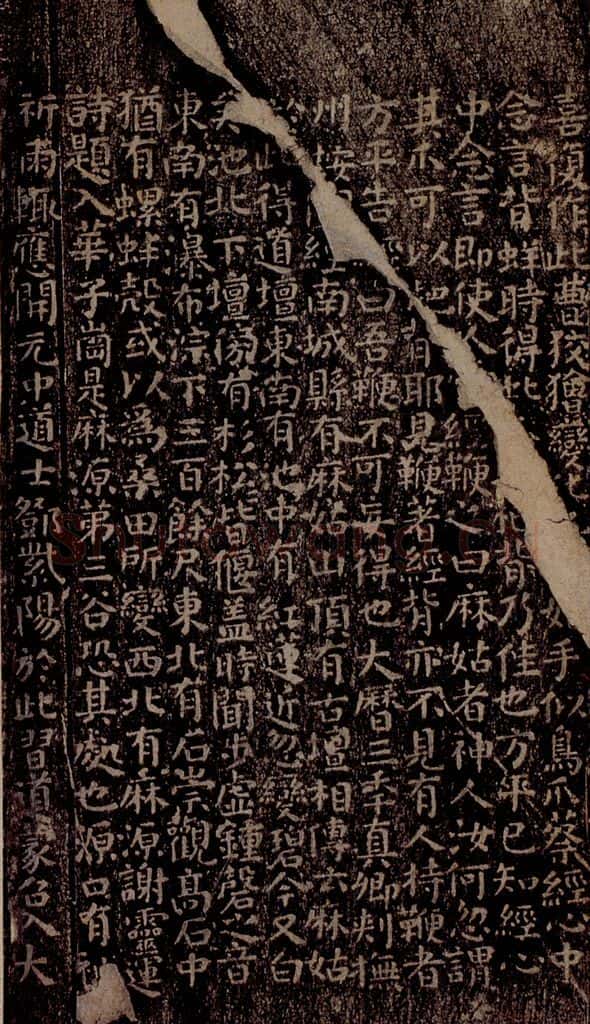 喜復作此曹狡獪變化手似鳥爪蔡經心中
念言背蛘時得此杷背乃佳也方平已知經心
中念言即使人經鞭之曰麻姑者神人汝何忽謂
其爪可以杷背耶見鞭著經背亦不見有人持鞭者
方平告經曰吾鞭不可妄得也大曆三秊真卿刾撫
州按圖經南城縣有麻姑山頂有古壇相傳云麻姑
於此得道壇東南有池中有紅蓮近忽變碧今又白
矣池北下壇傍有杉松皆偃盖時聞步虛鍾磬之音
東南有瀑布淙下三百餘尺東北有石崇觀高石中
猶有螺蚌殼或以為桑田所變西北有麻源謝靈運
詩題入華子崗是麻源第三谷恐其處也源口有神
祈雨輒應開元中道士鄧紫陽於此習道蒙召入大